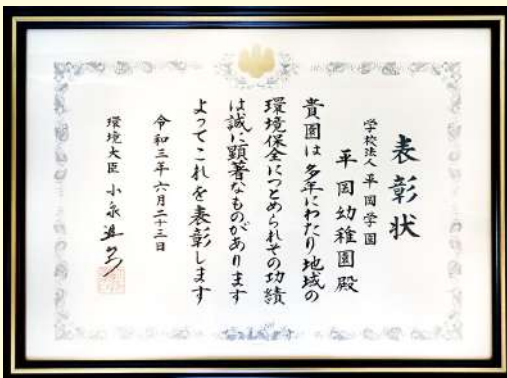 表彰状
学校法人 平岡学園
平岡幼稚園殿
貴園は多年にわたり地域の
環境保全につとめられその功績
は誠に顕著なものがあります
よってこれを表彰します
令和三年六月二十三日
環境大臣 小泉進次郎